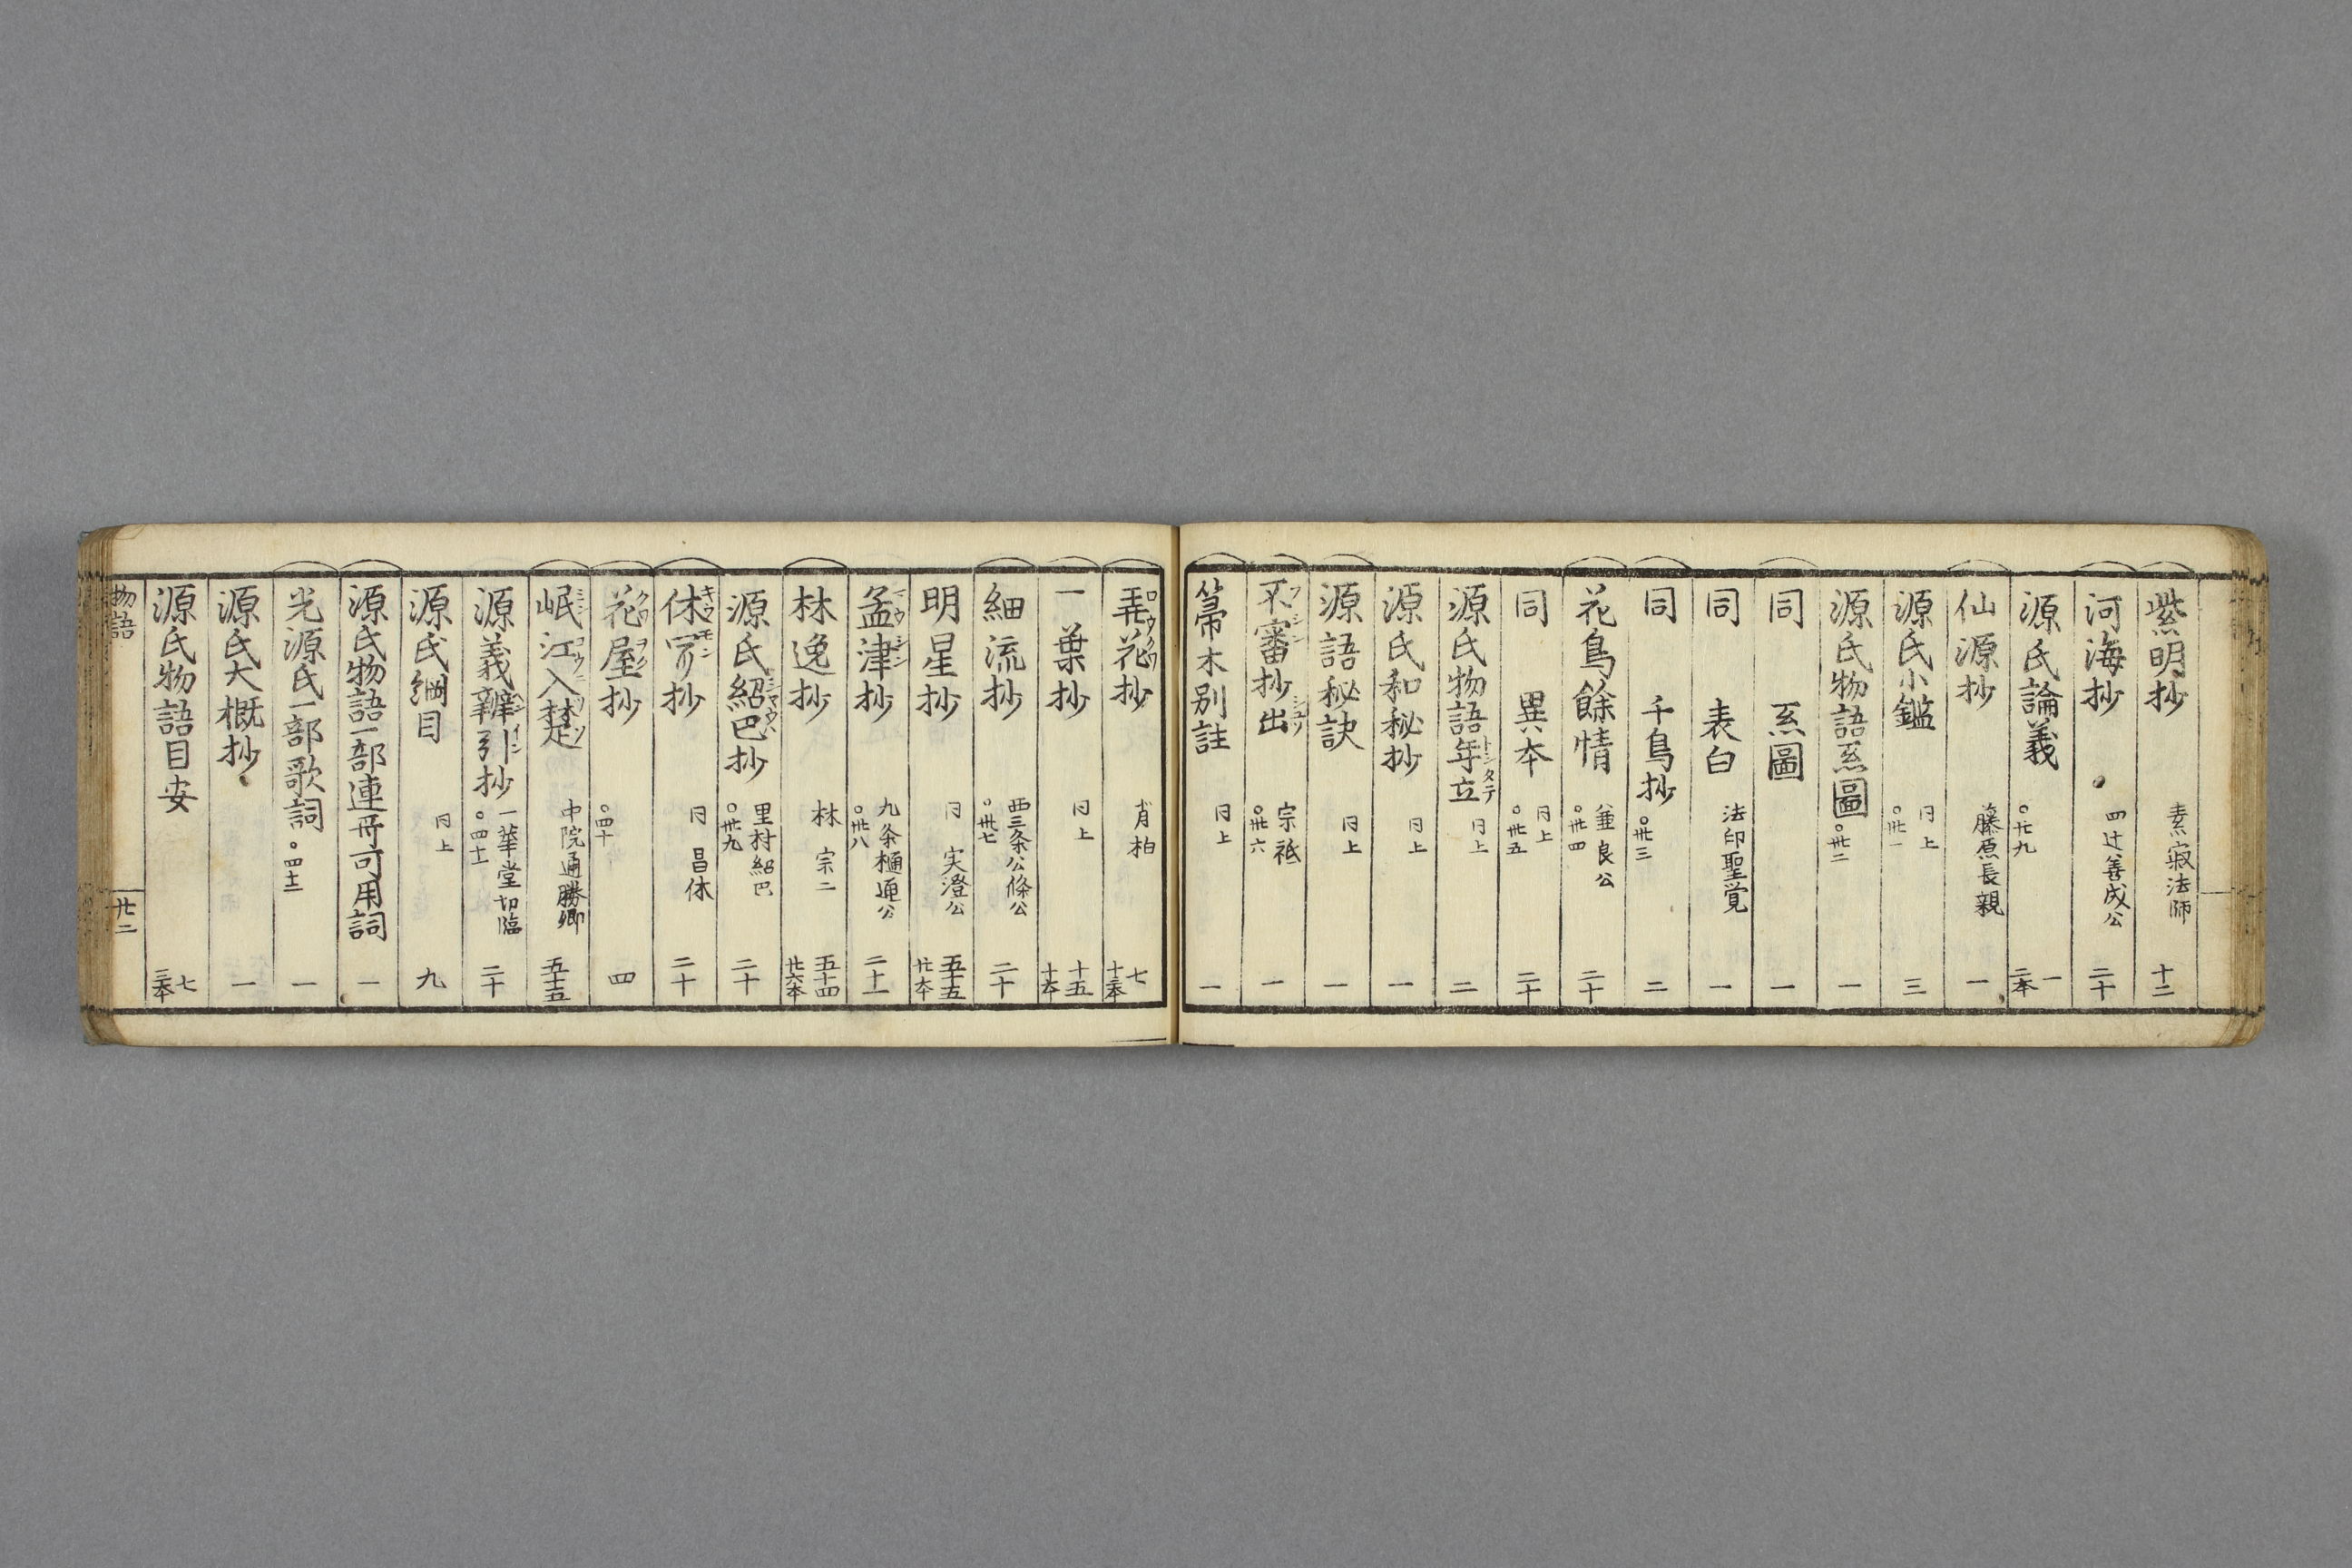 紫明抄 素寂法師 十二
河海抄 四辻善成公 二十
源氏論義 ○廿九 一 二本
仙源抄 藤原長親 一
源氏小鑑 同上 ○卅一 三
源氏物語系圖 ○卅二 一
同 系圖 一
同 表白 法印聖覚 一
同 千鳥抄 ○卅三 二
花鳥餘情 兼良公 ○卅四 二十
同 異本 同上 ○卅五 二十
源氏物語年立 トシタテ 同上 二
源氏和秘抄 同上 一
源語秘訣 同上 一
不審抄出 宗祇 ○卅六 一
箒木別註 同上 一
弄花抄 ロウクワ 肖柏 七 十三本
一葉抄 同上 十五 十本
細流抄 西三条公條公 ○卅七 二十
明星抄 同 実澄公 五十五 廿本
孟津抄 マウシン 九条稙通公 ○卅八 二十一
林逸抄 林 宗二 五十四 廿六本
源氏紹巴抄 里村紹巴 ○卅九 二十
休聞抄 キウモン 同 昌休 二十
花屋抄 クワヲク ○四十 四
岷江入楚 中院通勝卿 五十五
源義辨引抄 一華堂切臨 ○四十一 二十
源氏綱目 同上 九
源氏物語一部連哥可用詞 一
光源氏一部歌詞 ○四十二 一
源氏大概抄 一
源氏物語目安 七 三本
物語 廿二